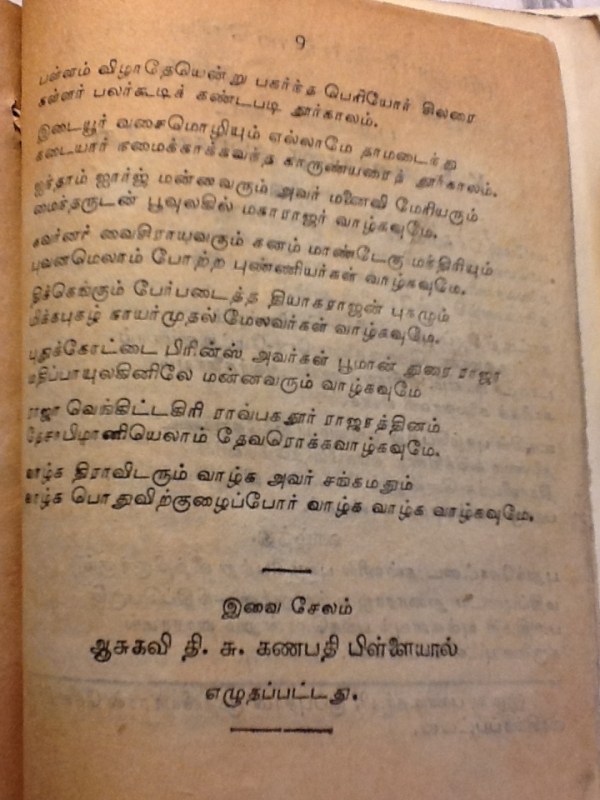 9
பள்ளம் விழாதேயென்று பகர்ந்த பெரியோர்
கள்ளர் பலர்கூடிக் கண்டபடி தூர்காலம்.
இடையூர் வசைமொழியும் எல்லாமே தாமடைந்து
கடையார் நமைக்காக்கவந்த காருண்யரைத் தூர்காலம்.
ஐந்தாம் ஜார்ஜ் மன்னவரும் அவர் மனைவி மேரியரும்
மைந்தருடன் பூவுலகில் மகாராஜர் வாழ்கவுமே.
கவர்னர் வைசிராயவரும் கனம் மாண்டேகு மந்திரியும்
புவனமெலாம் போற்ற புண்ணியர்கள் வாழ்கவுமே.
திக்கெங்கும் பேர்படைத்த தியாகராஜன் புகழும்
மிக்கபுகழ் நாயர்முதல் மேலவர்கள் வாழ்கவுமே.
புதுக்கோட்டை பிரின்ஸ் அவர்கள் பூமான் துரை ராஜா
மதிப்பாயுலகினிலே மன்னவரும் வாழ்கவுமே
ராஜா வெங்கிட்டகிரி ராவ்பகதூர் ராஜரத்தினம்
தேசாபிமானியெலாம் தேவரொக்கவாழ்கவுமே.
வாழ்க திராவிடரும் வாழ்க அவர் சங்கமதும்
வாழ்க பொதுவிற்குழைப்போர் வாழ்க வாழ்க வாழ்கவுமே.
இவை சேலம்
ஆசுகவி தி. சு. கணபதி பிள்ளையால்
எழுதப்பட்டது.